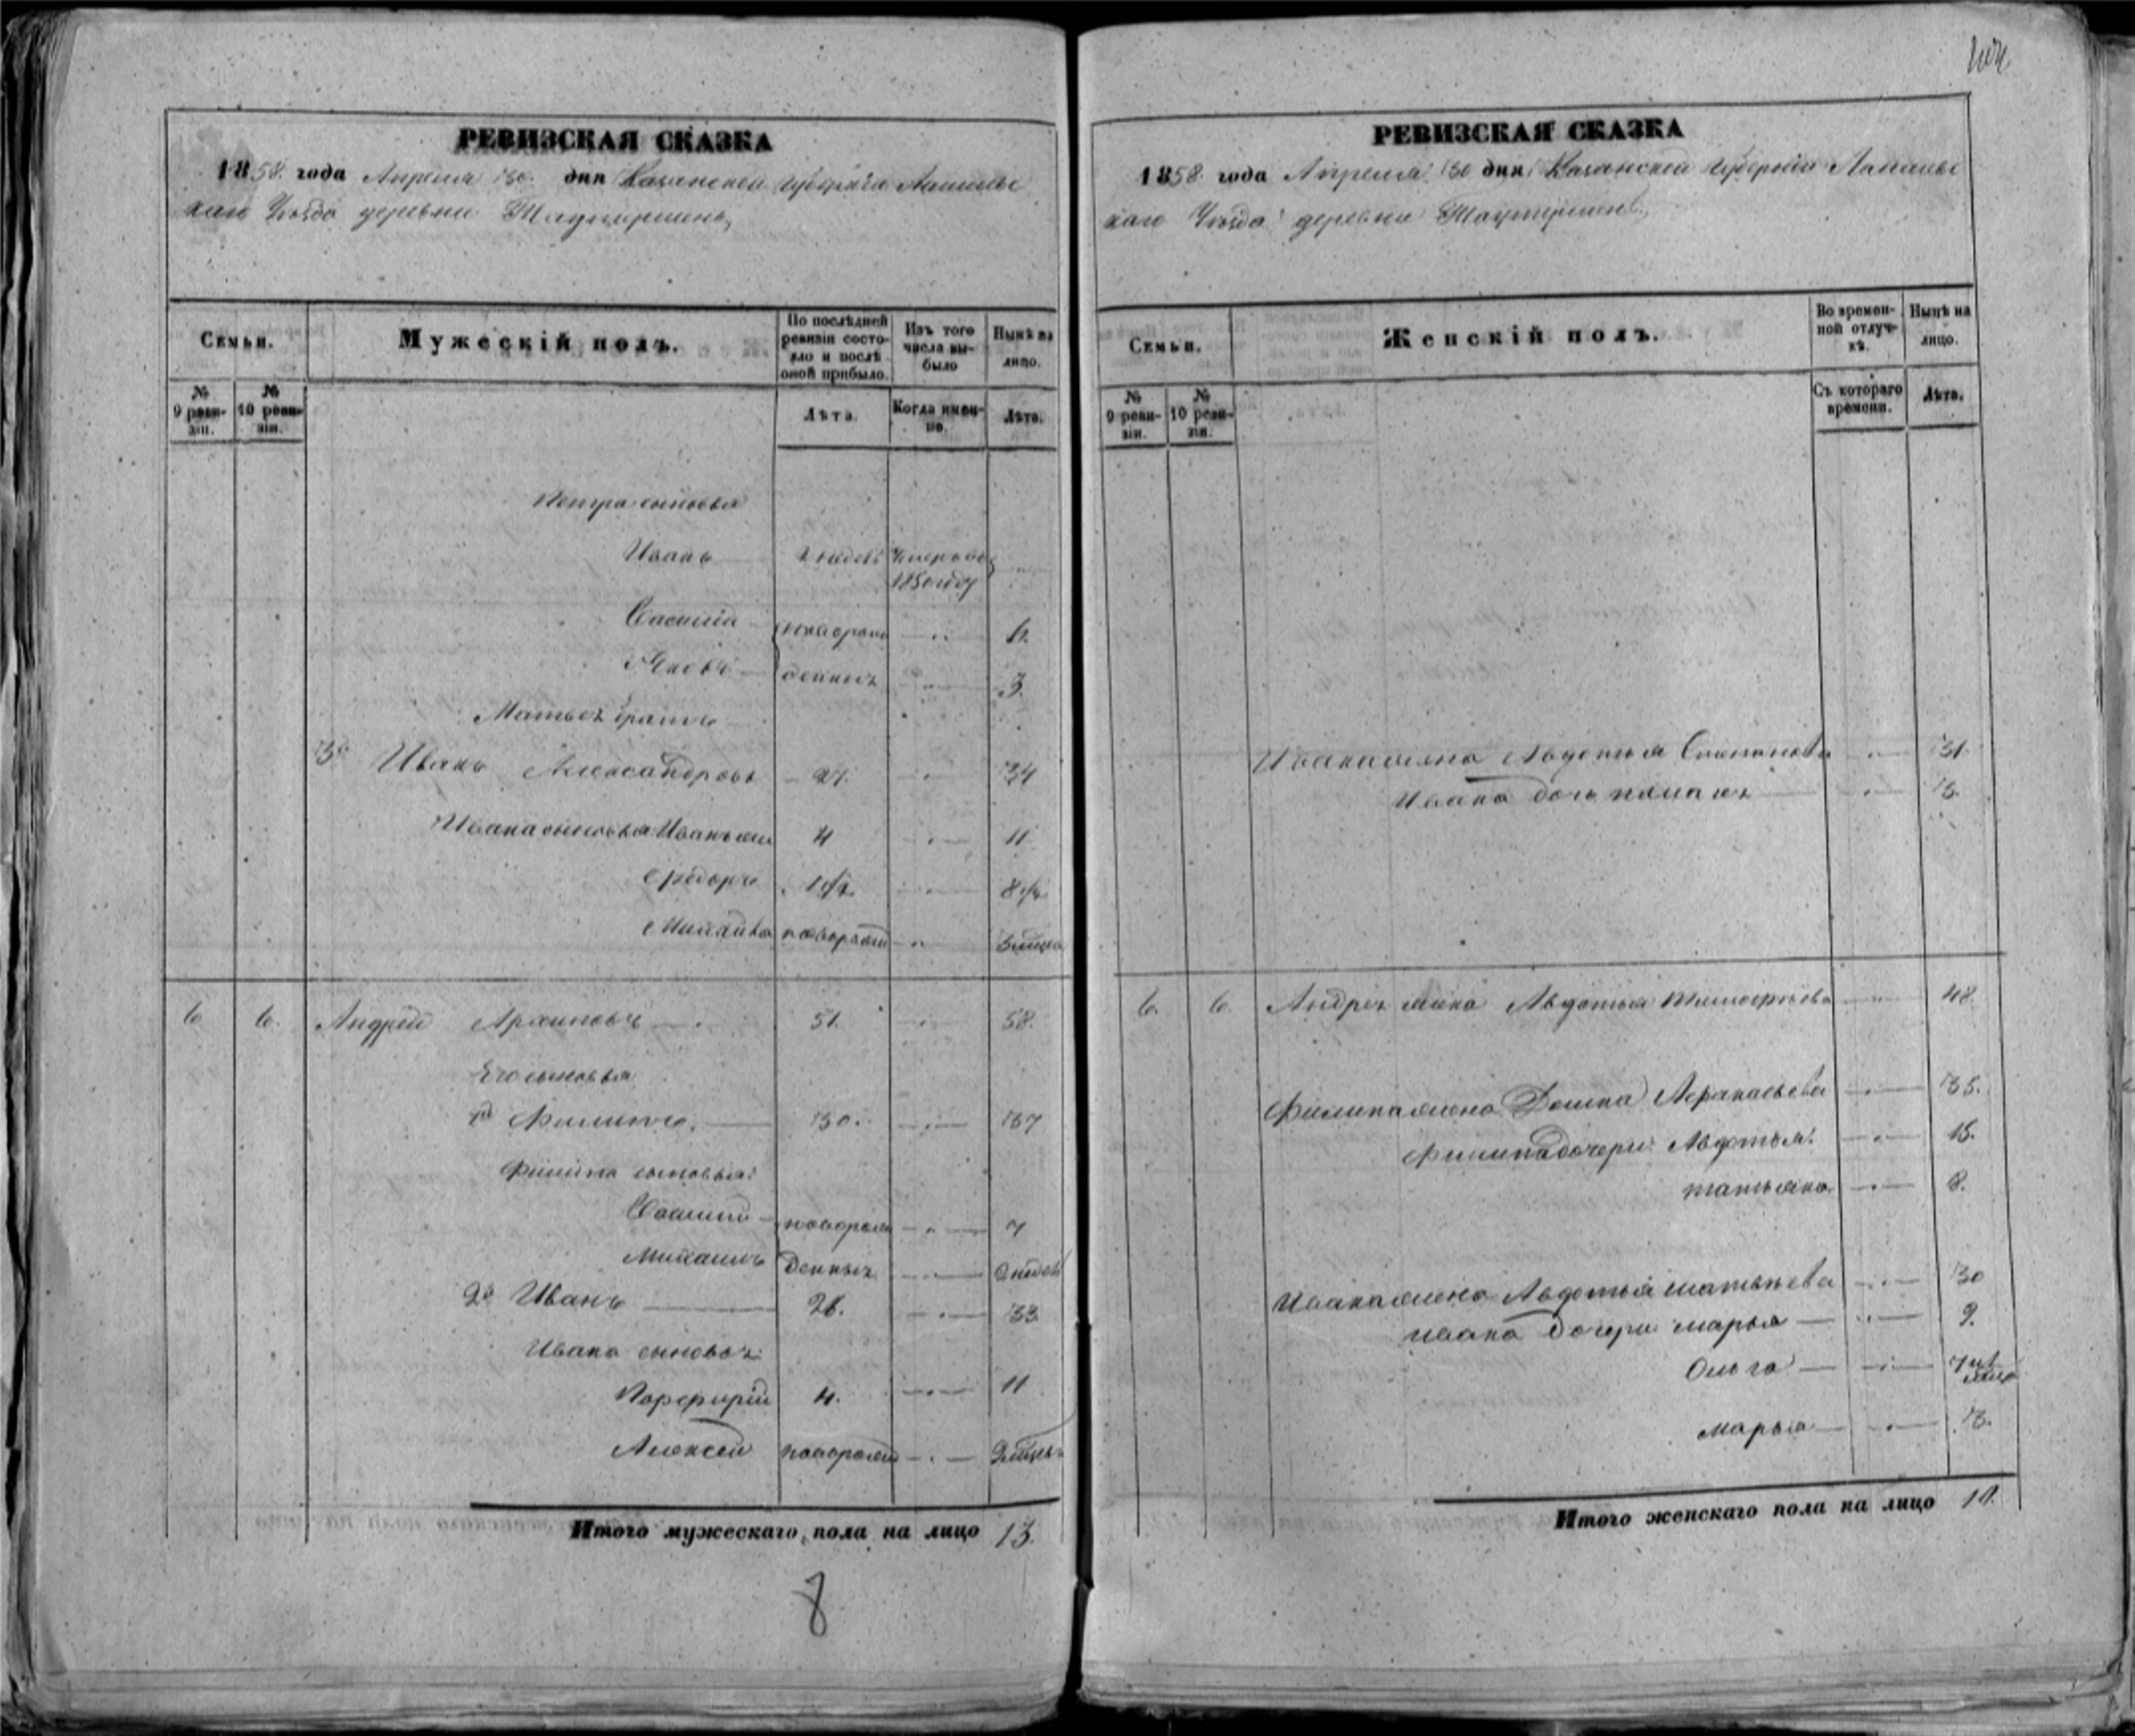 РЕВИЗСКАЯ СКАЗКА
1858 года Апреля 30 дня Казанской Губернiи Лаишевс
каго Уѣзда деревни
Семьи.
Мужескiй полъ.
По послѣдней ревизiи состояло и послѣ оной прибыло.
Изъ того числа выбыло
Нынѣ на лицо.
№ 9 ревизiи.
№ 10 ревизiи.
Лѣта.
Когда именно.
Лѣта.
Петра сыновья
Иванъ 2 недел Умеръ въ 1850 году
Василiй новорож 6.
Яковъ денныхъ 3.
братъ
3й Иванъ Александровъ 27. 34
Ивана сыновья Иванъ 4 11
Ѳедоръ 1 1/2 8 1/2
Михайла новорожд
6 6. Андрей Архиповъ 51. 58.
Его сыновья
1й Филипъ 30. 37
Филипа сыновья:
Василiй новорож 7
Михаилъ денныхъ 2 недел
2й Иванъ 26. 33
Ивана сыновья
Порфирiй 4. 11
Алексей новорожд
Итого мужескаго пола на лицо 13.
8
РЕВИЗСКАЯ СКАЗКА
1858 года Апреля 30 дня Казанской Губернiи Лаишевс
каго Уѣзда деревни
Семьи.
Женскiй полъ.
Во временной отлучкѣ.
Нынѣ на лицо.
№ 9 ревизiи.
№ 10 ревизiи.
Съ котораго времени.
Лѣта.
Ивана жена Авдотья Степанова 31.
Ивана дочь 3.
6. 6. Андрея жена Авдотья Тимофеева 48.
Филипа жена Афанасьева 35.
Филипа дочери Авдотья 15.
Татьяна 8.
Ивана жена Авдотья Матвѣева 30
Ивана дочери Марья 9.
Ольга 7
Марья 3.
Итого женскаго пола на лицо 11.